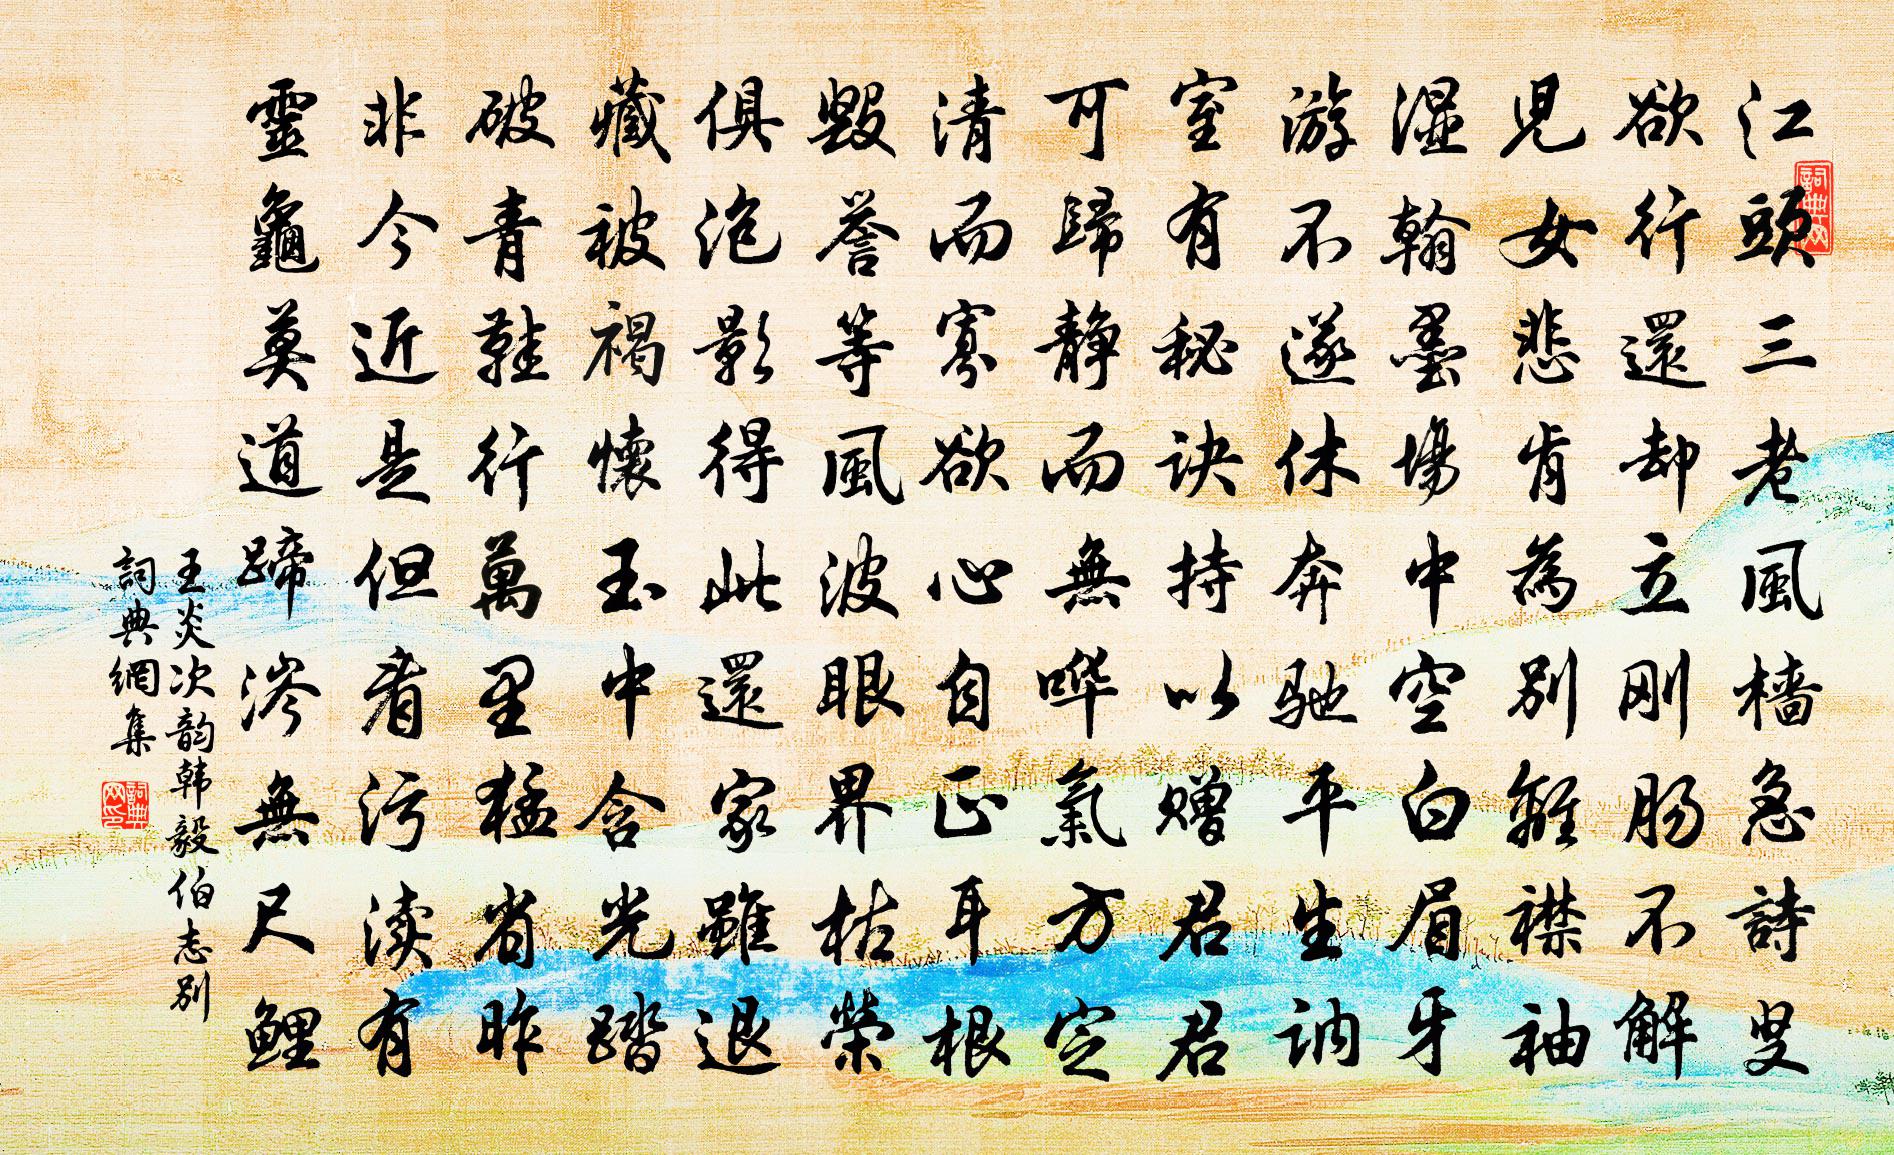 江頭三老風檣急詩叟
欲行還却立刚肠不解
児女悲肯為别離襟袖
湿翰墨場中空白眉牙
游不遂休奔驰平生讷
室有秘诀持以赠君君
可歸静而無哗氣方定
清而寡欲心自正耳根
毁誉等風波眼界枯榮
俱泡影得此還家雖退
藏被褐懷玉中含光踏
破青鞋行萬里猛省昨
非今近是但看污渎有
靈龜莫道蹄涔無尺鯉
王炎次韵韩毅伯志别
詞典網集
詞典网
詞典网印